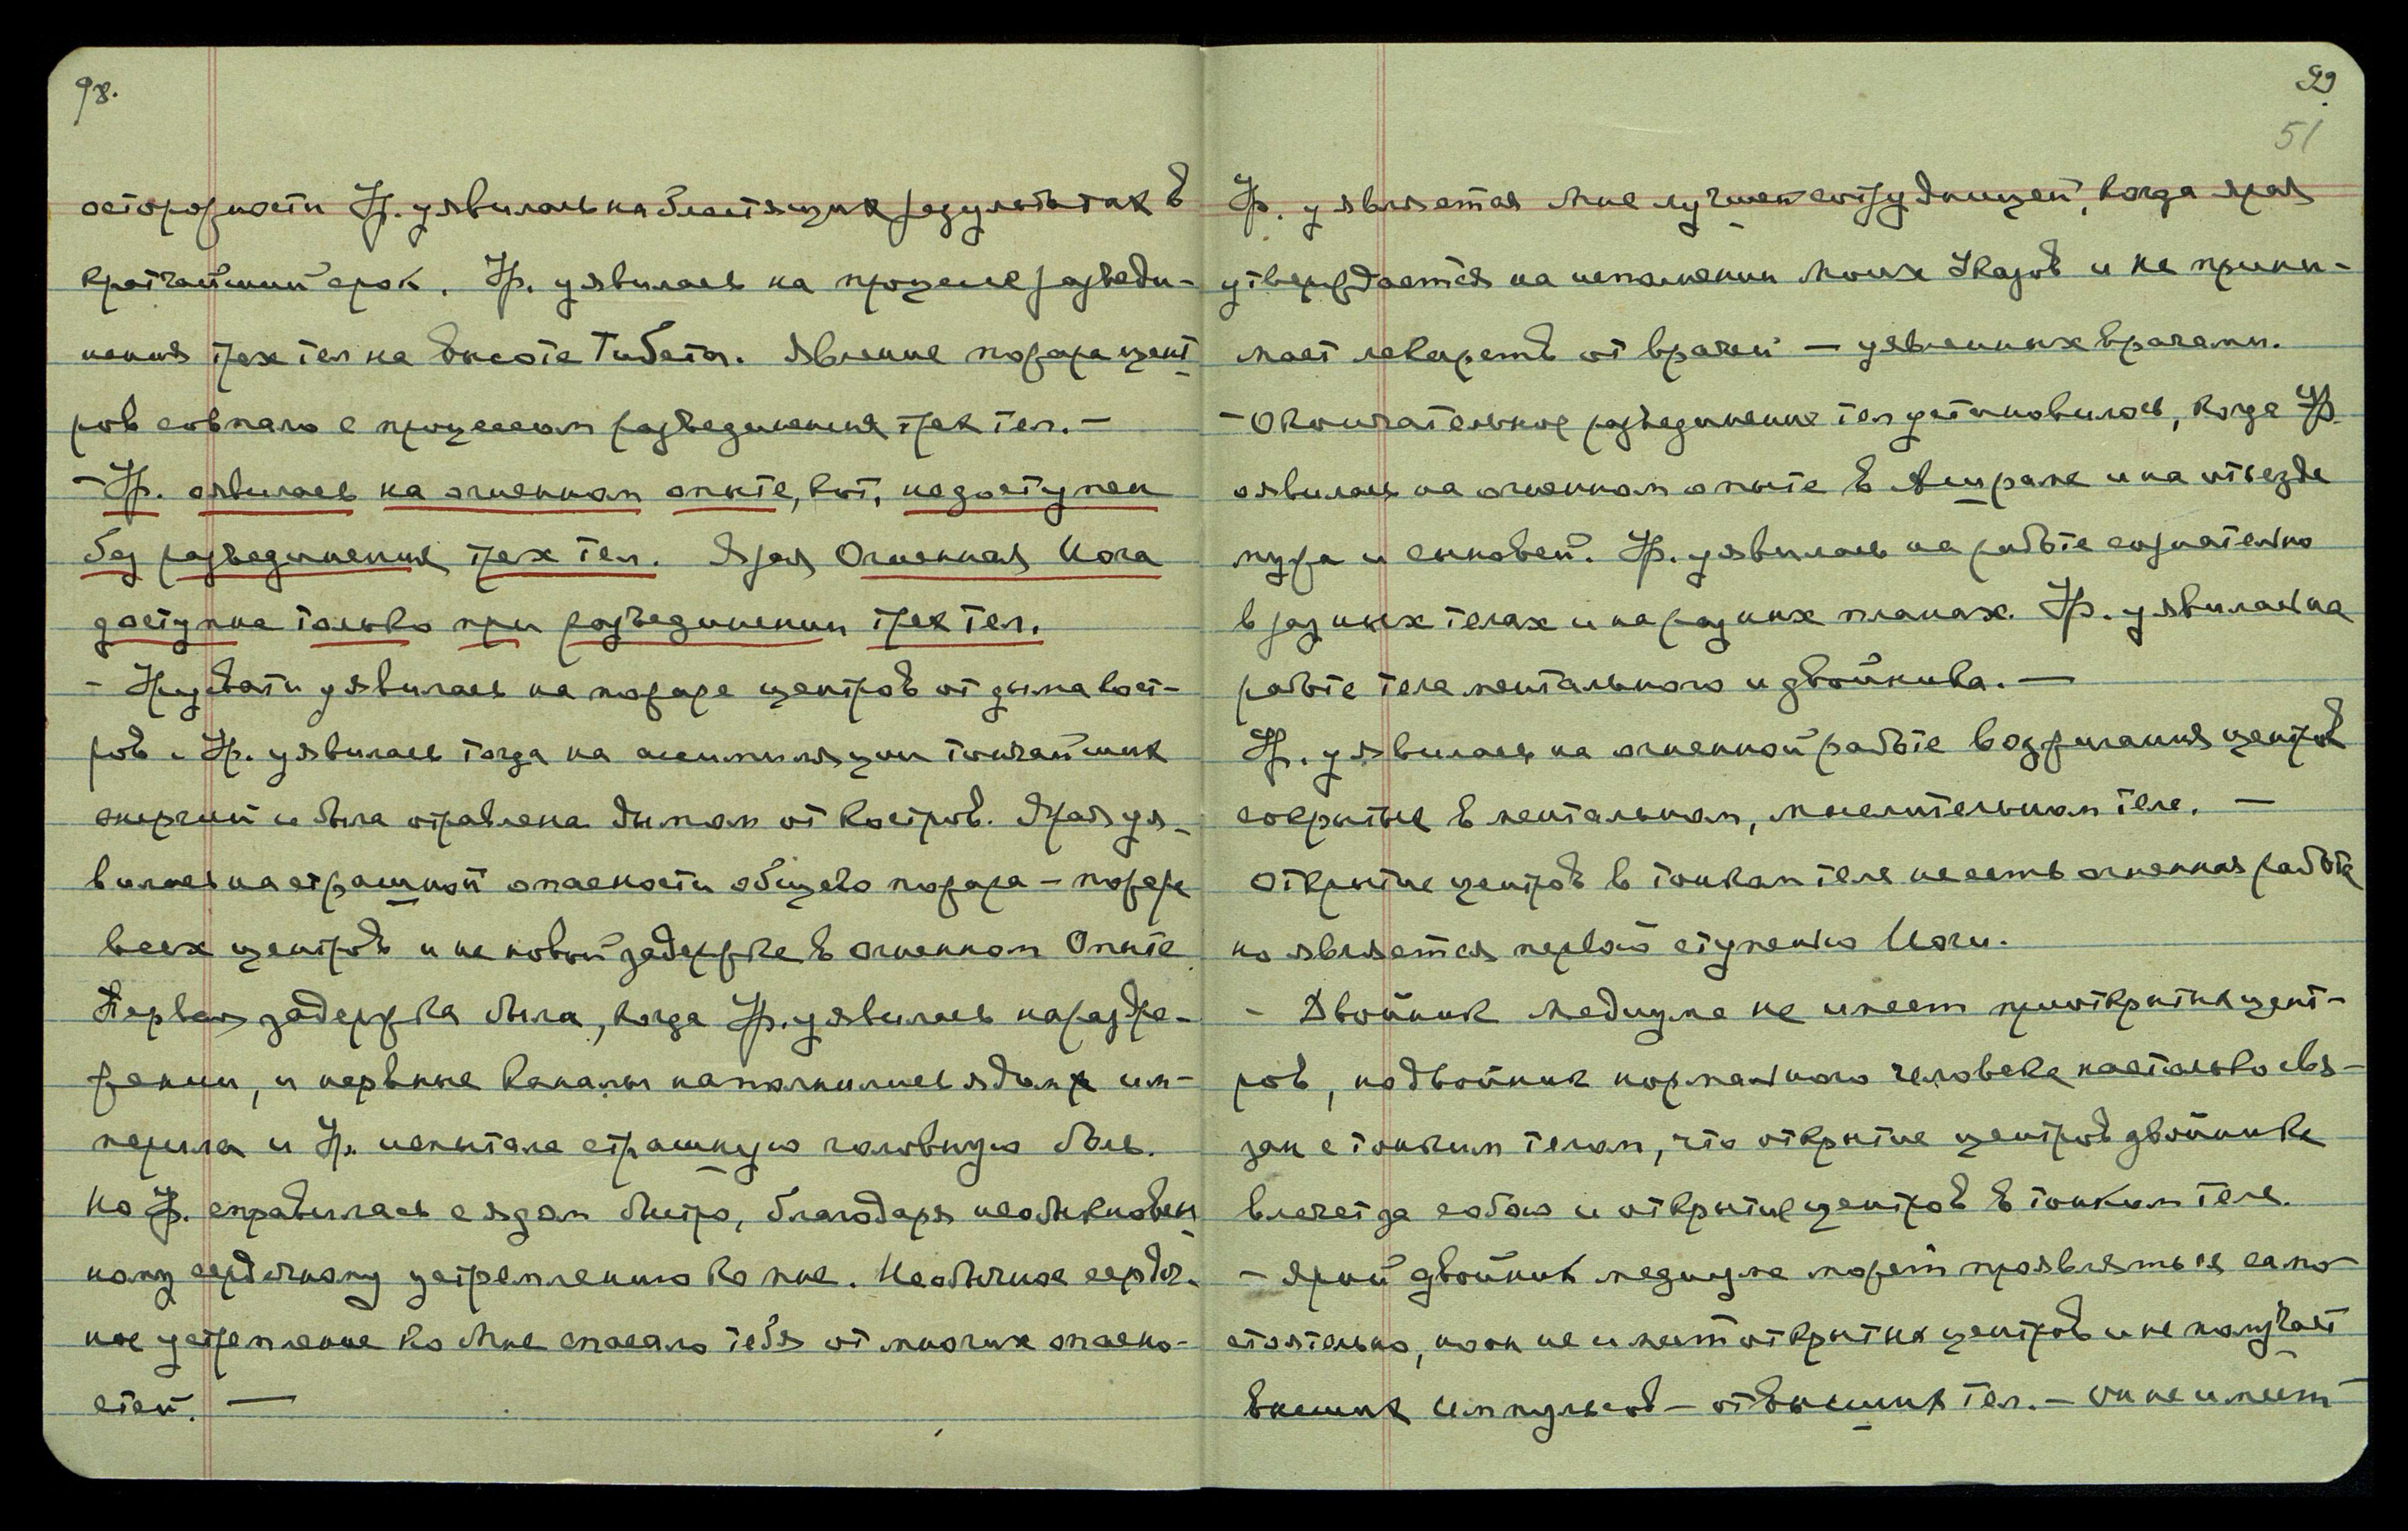 98.
осторожности Ур. уявилась на блестящих результатах в
кратчайший срок. Ур. уявилась на процессе разъеди-
нения трех тел на высоте Тибета. Явление пожара цент
ров совпало с процессом разъединения трех тел. –
– Ур. явилась на огненном опыте, кот. недоступен
без разъединения трех тел. Ярая Огненная Иога
доступна только при разъединении трех тел.
– Урусвати уявилась на пожаре центров от дыма кост-
ров. Ур. уявилась тогда на ассимиляции тончайших
энергий и была отравлена дымом от костров. Ярая уя-
вилась на страшной опасности общего пожара – пожара
всех центров и на новой задержке в огненном Опыте
Первая задержка была, когда Ур. уявилась на раздра-
жении, и нервные каналы наполнились ядом им-
перила и Ур. испытала страшную головную боль.
Но Ур. справилась с ядом быстро, благодаря необыкновен
ному сердечному устремлению ко мне. Необычное сердеч-
ное устремление ко Мне спасало тебя от многих опасно-
стей. –
99
51
Ур. уявляется Мне лучшей сотрудницей, когда ярая
утверждается на исполнении Моих Указов и не прини-
мает лекарств от врачей – уявленных врачами.
– Окончательное разъединение тел установилось, когда Ур.
явилась на огненном опыте в Ашраме и на отъезде
мужа и сыновей. Ур. уявилась на работе сознательно
в разных телах и на разных планах. Ур. уявилась на
работе тела ментального и двойника. –
Ур. уявилась на огненной работе возжигания центров
сокрытых в ментальном, мыслительном теле. –
Открытие центров в тонком теле не есть огненная работа
но является первой ступенью Иоги.
– Двойник медиума не имеет приоткрытых цент-
ров, но двойник нормального человека настолько свя-
зан с тонким телом, что открытие центров двойника
влечет за собою и открытие центров в тонком теле.
– Ярый двойник медиума может проявляться само-
стоятельно, но он не имеет открытых центров и не получает
высших Импульсов – от высших тел. – Он не имеет